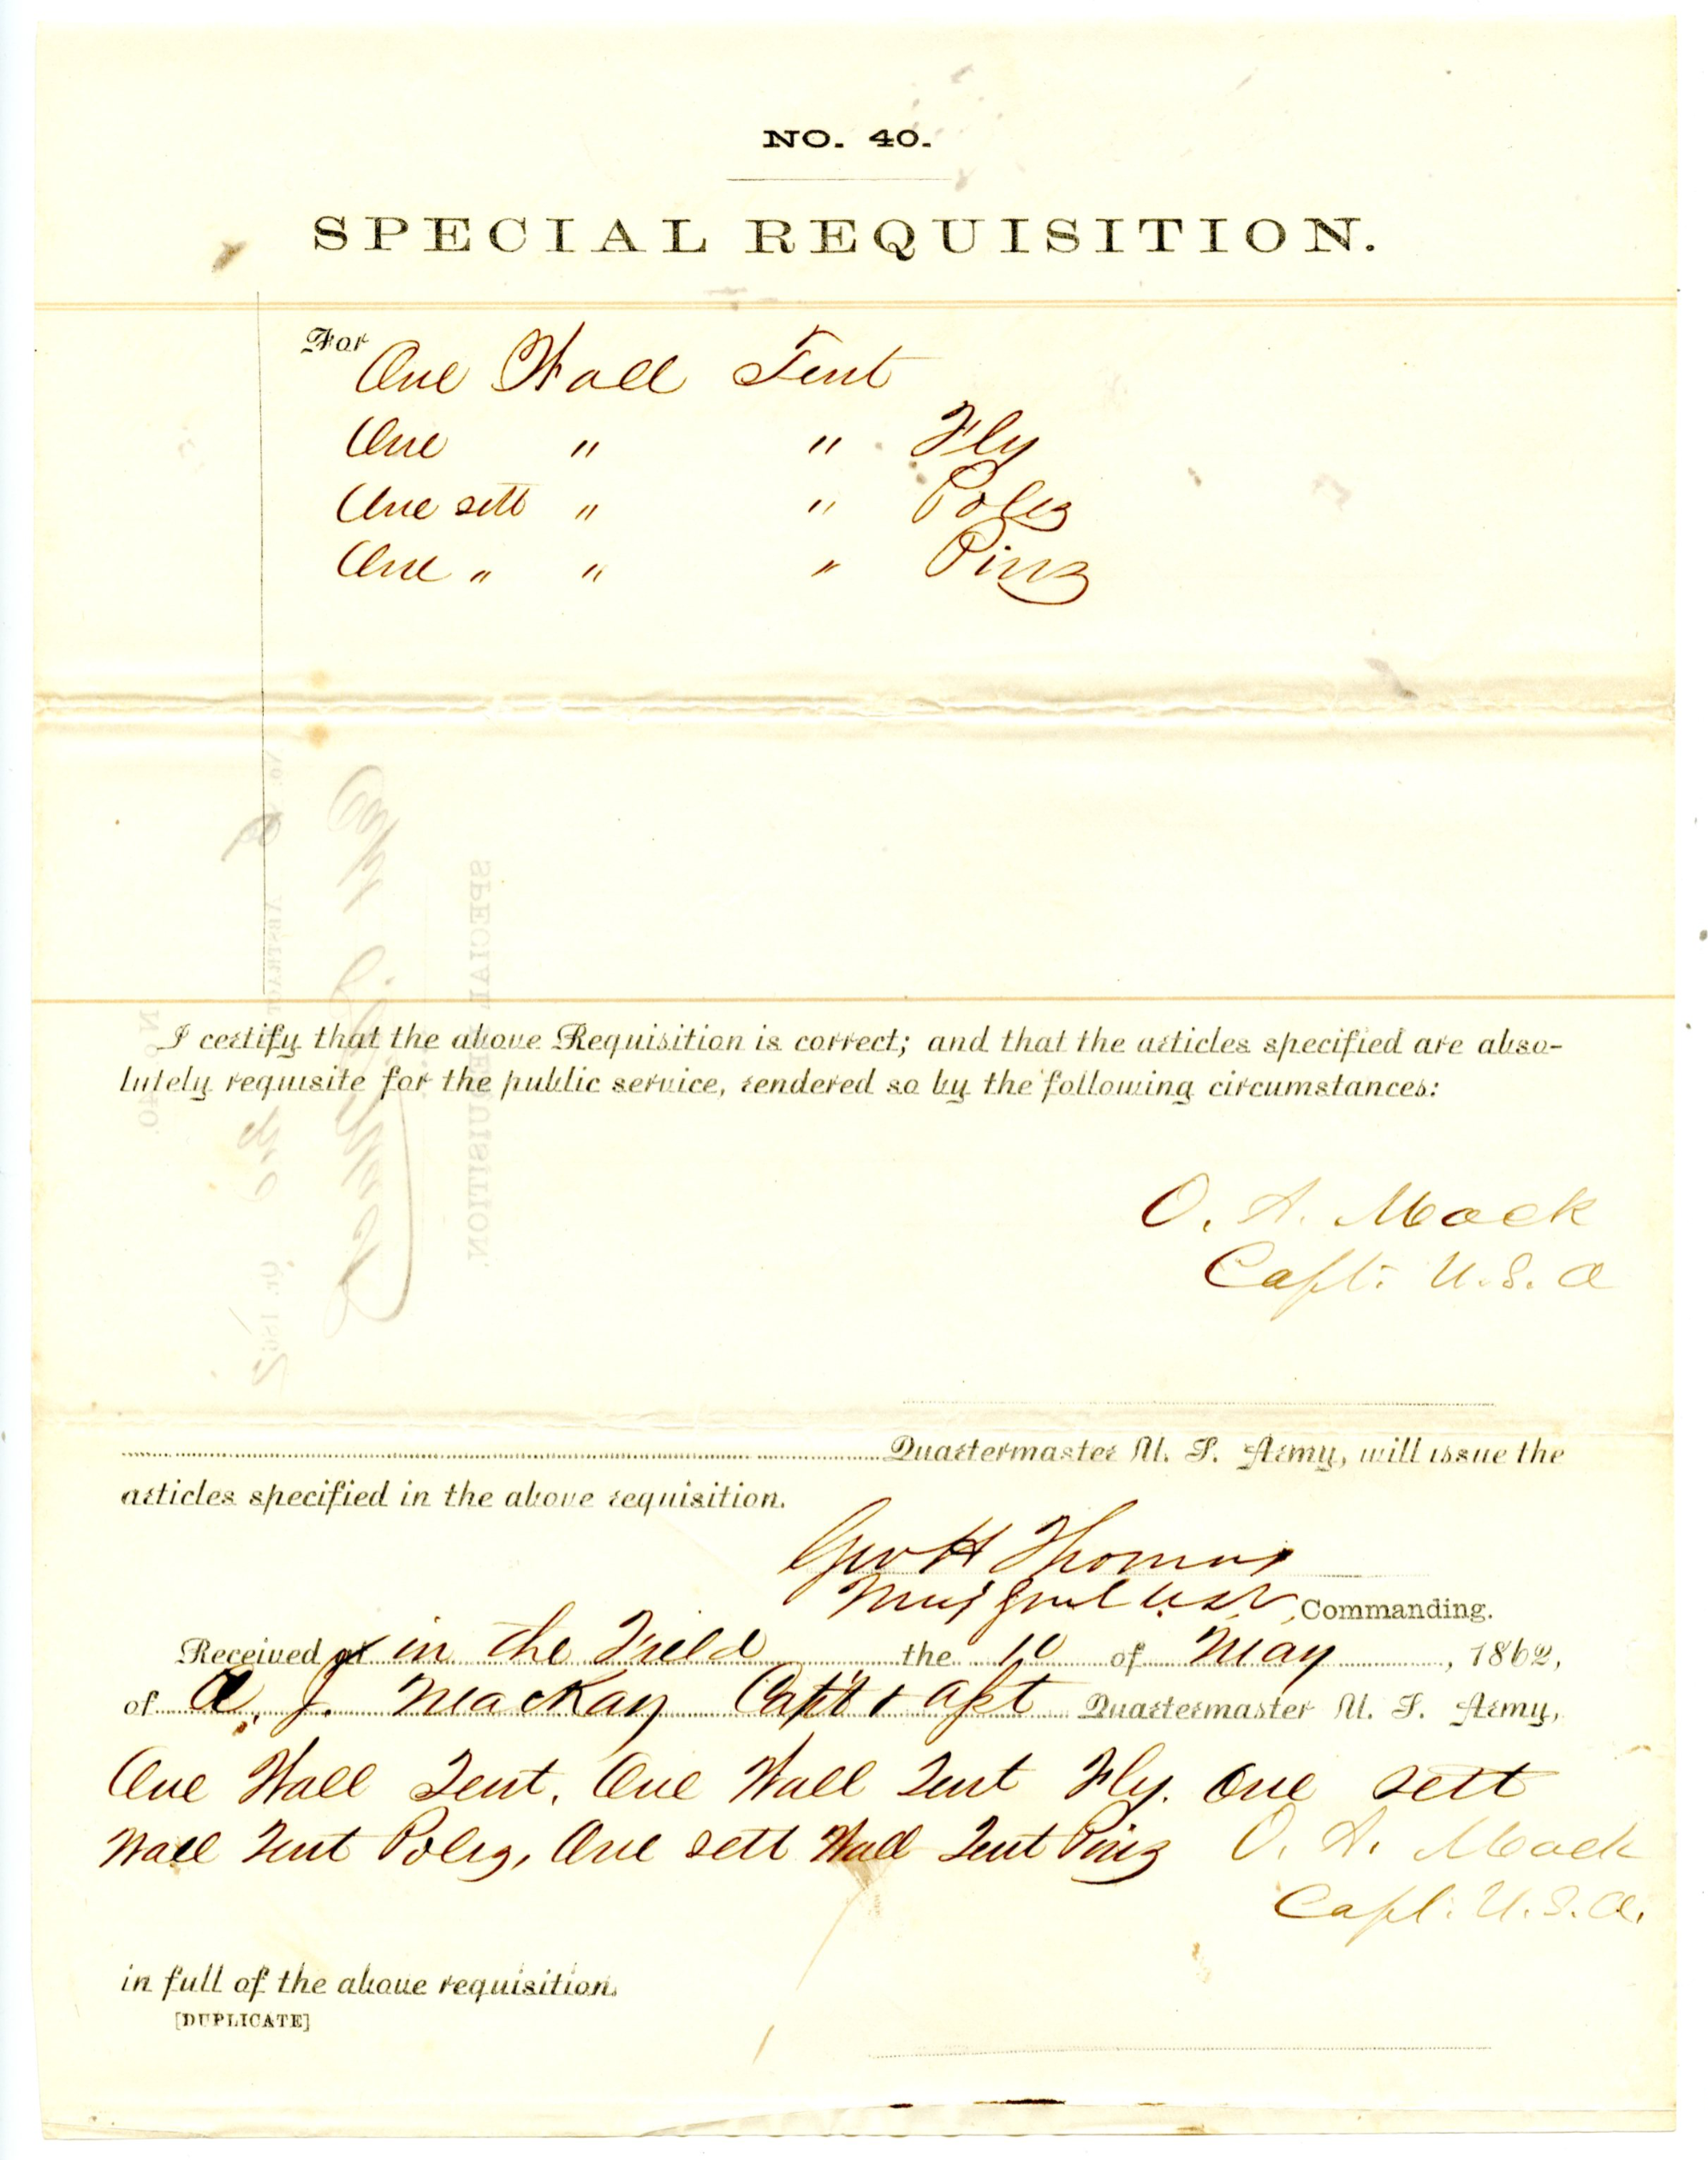 NO. 40.
SPECIAL REQUISITION.
For One Wall Tent
One " " Fly
One sett " " Poles
One " " " Pins
I certify that the above Requisition is correct; and that the articles specified are abso-
lutely requisite for the public service, rendered so by the following circumstances:
O. A. Mack
Capt. U.S.A
Quartermaster U. S. Army, will issue the
articles specified in the above requisition.
Geo H Thomas
Maj Genl USV Commanding.
Received at in the Field the 10 of May, 1862,
of A. J. MacKay Capt & Ast Quartermaster U. S. Army,
One Wall Tent, One Wall Tent Fly. One sett
Wall Tent Poles, One sett Wall Tent Pins O. A. Mack
Capt. U.S.A.
in full of the above requisition.
[DUPLICATE]